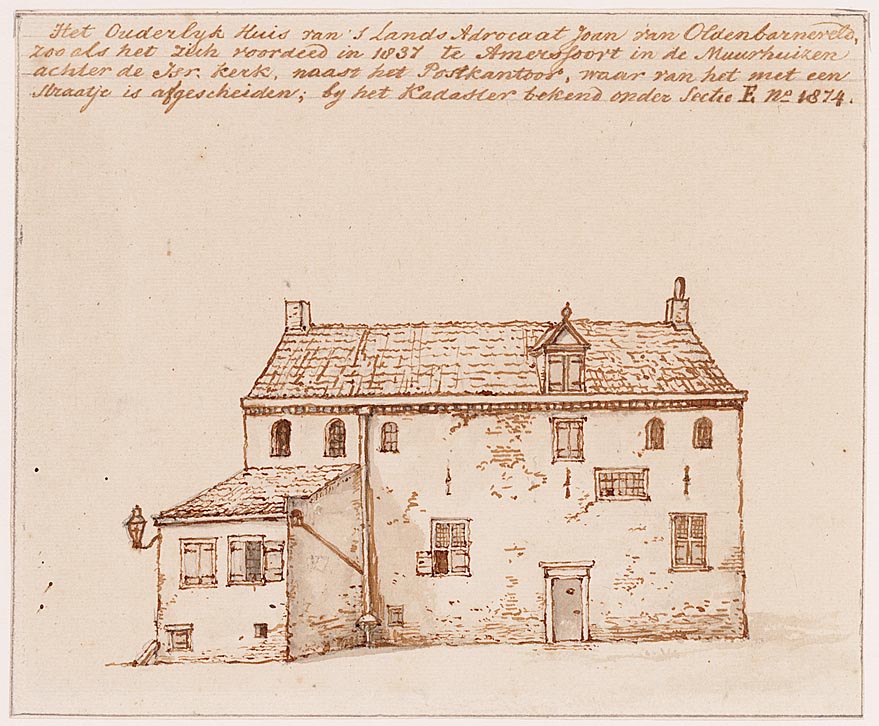 Het Ouderlyk Huis van 's Lands Advocaat Joan van Oldenbarneveld,
zoo als het zich voordeed in 1837 te Amersfoort in de Muurhuizen
achter de Isr. kerk, naast het Postkantoor, waar van het met een
straatje is afgescheiden; by het Kadaster bekend onder Sectie E. No 1874.